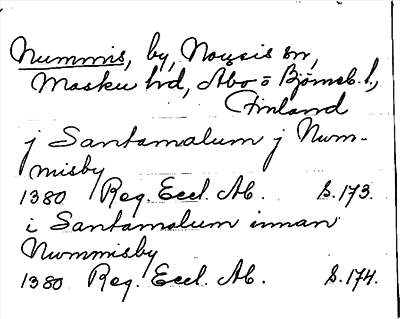 Nummis, by, Nousis sn,
Masku hd, Åbo o Björneb. l.,
Finland
j Santamalum j Num-
misby
1380 Reg. Eccl. Ab. S. 173.
i Santamalum innan
Nummisby
1380 Reg. Eccl. Ab. S. 174.